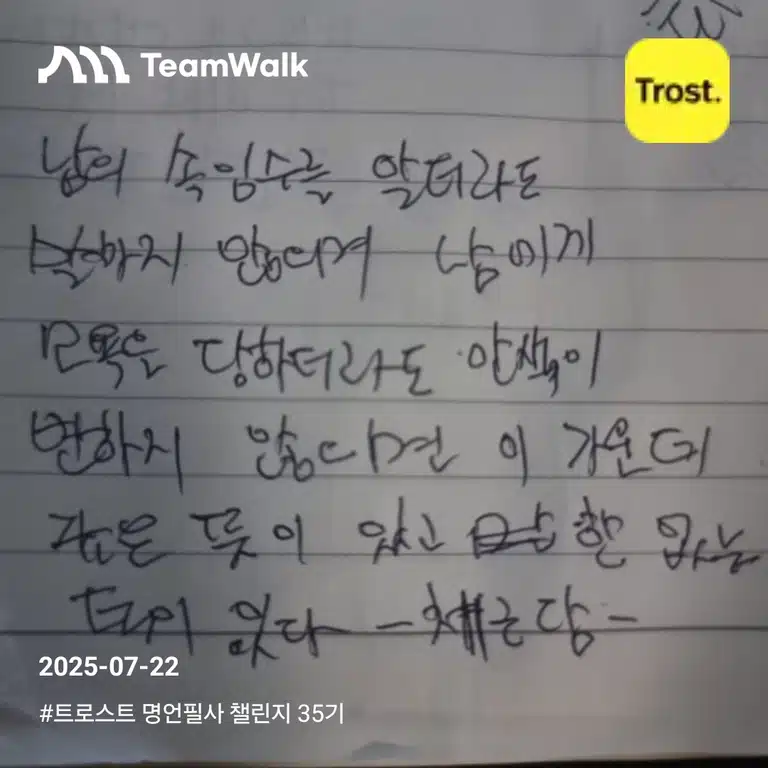 TeamWalk
Trost.
남의 속임수를 알더라도
말하지 않으며 남에게
모욕을 당하더라도 안색이
변하지 않는다면 이 가운데
깊은 뜻이 있고 한 없는
덕이 있다 -채근담-
2025-07-22
#트로스트 명언필사 챌린지 35기